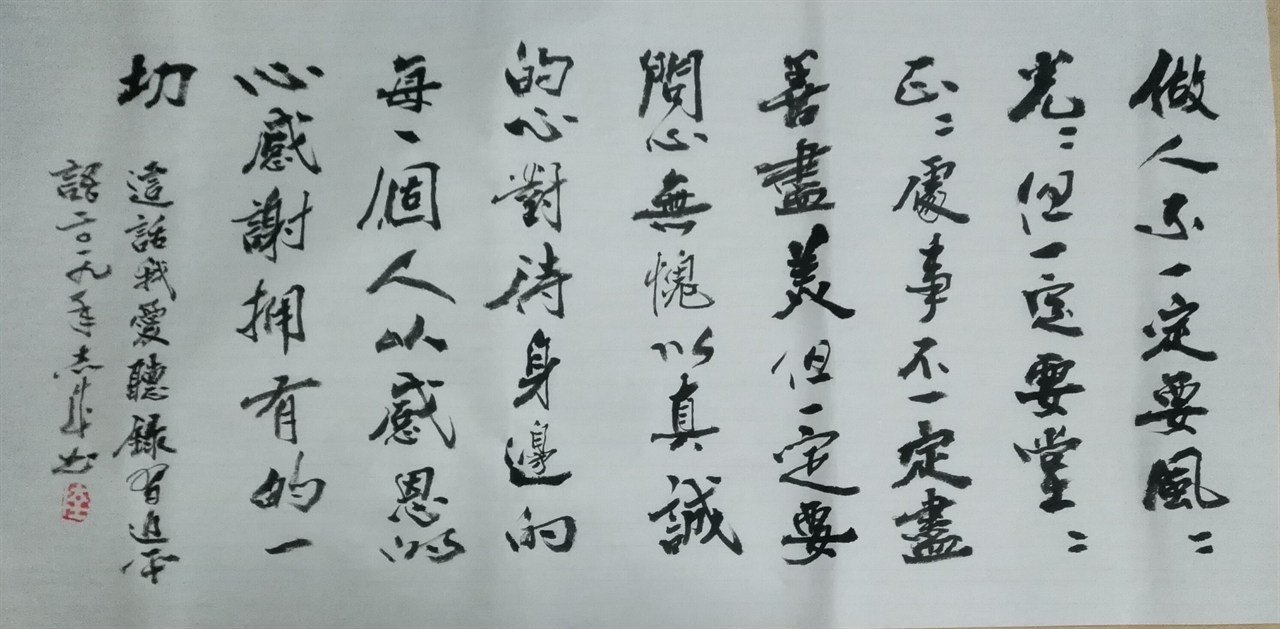 做人不一定要風〻
光〻但一定要堂〻
正〻處事不一定盡
善盡美但一定要
問心無愧以真誠
的心對待身邊的
每一個人以感恩的
心感謝擁有的一
切
這話我愛聽錄習近平
語二〇一九年志成书